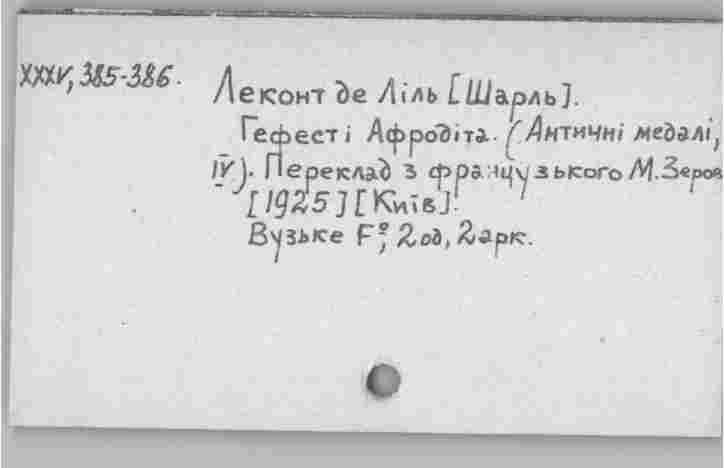 XXXV, 385-386. Леконт де Ліль [Шарль].
Гефест і Афродіта. (Античні медалі,
IV). Переклад з французького М. Зеров
[1925] [Київ].
Вузьке F°, 2 од, 2 арк.